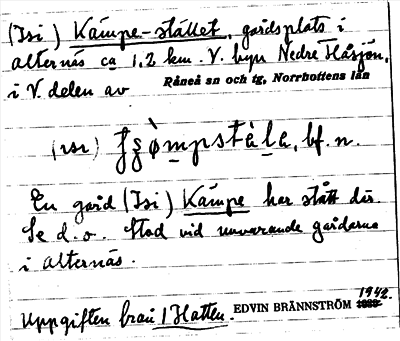 (Isi) Kämpe-stället, gårdsplats i
Alternäs ca 1,2 km. V. byn Nedre Flåsjön,
i V. delen av Råneå sn och tg, Norrbottens län
bf. n.
En gård (Isi) Kämpe har stått där.
Se d. o. Stod vid nuvarande gårdarna
i Alternäs.
Uppgiften från 1 Hatten EDVIN BRÄNNSTRÖM 1942.